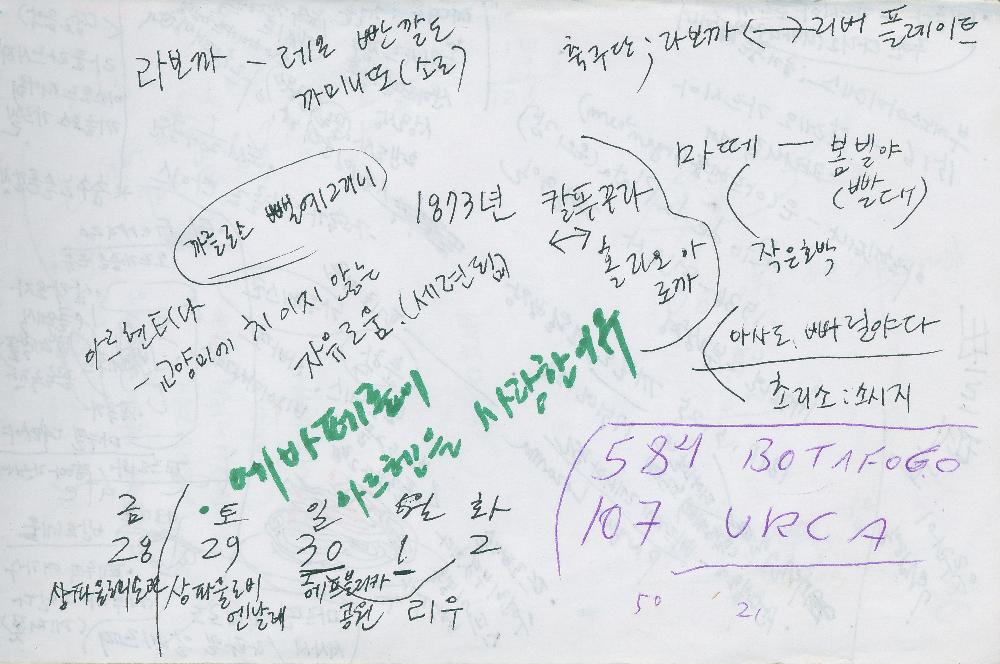 라보까 – 레온 빤깔도
까미니또(소로)
축구단; 라보까 <–> 리버 플레이트
마떼 – 봄빌야
(빨대)
작은호박
까를로스 뻴예그리니
1873년 칼푸꾸라
<–> 훌리오 아
로까
아르헨티나
– 교양미에 치이지 않는
자유로움.(세련됨)
아사도, 빠릴야다
초리소 : 소시지
에바 페론이
아르헨을 사랑한 이유
584 BOTAFOGO
107 URCA
50 21
금 토 일 월 화
28 29 30 1 2
상파울로비
엔날레
헤푸블리카
공원
리우